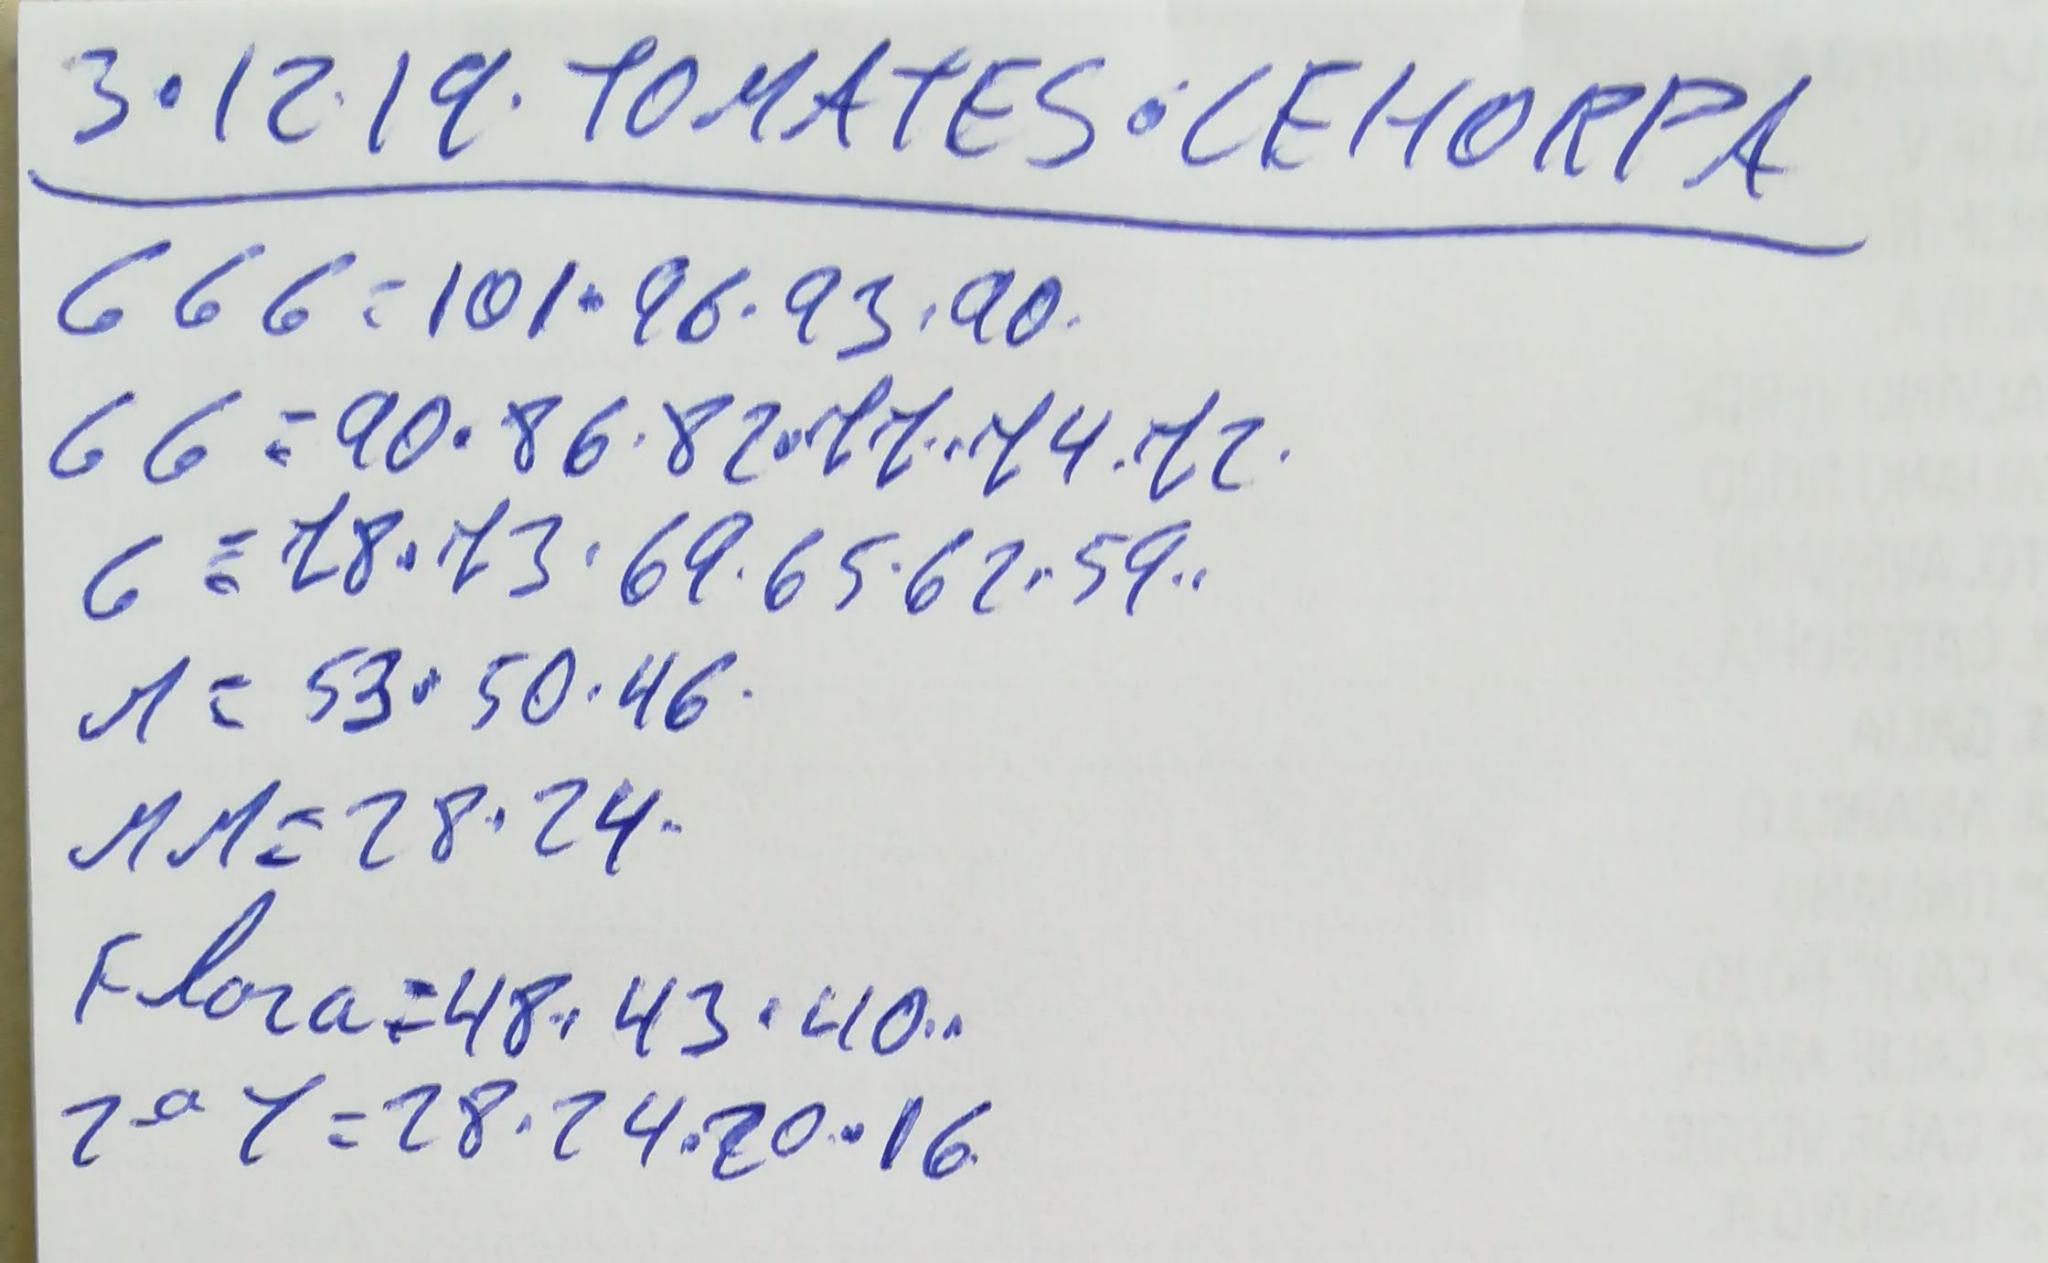 3.12.19. TOMATES. CEHORPA
GGG=101.96.93.90.
GG=90.86.82.77..74.72.
G=78.73.69.65.62..59..
M=53.50.46.
MM=28.24.
Flora=48.43.40..
2ª Y=28.24.20..16.